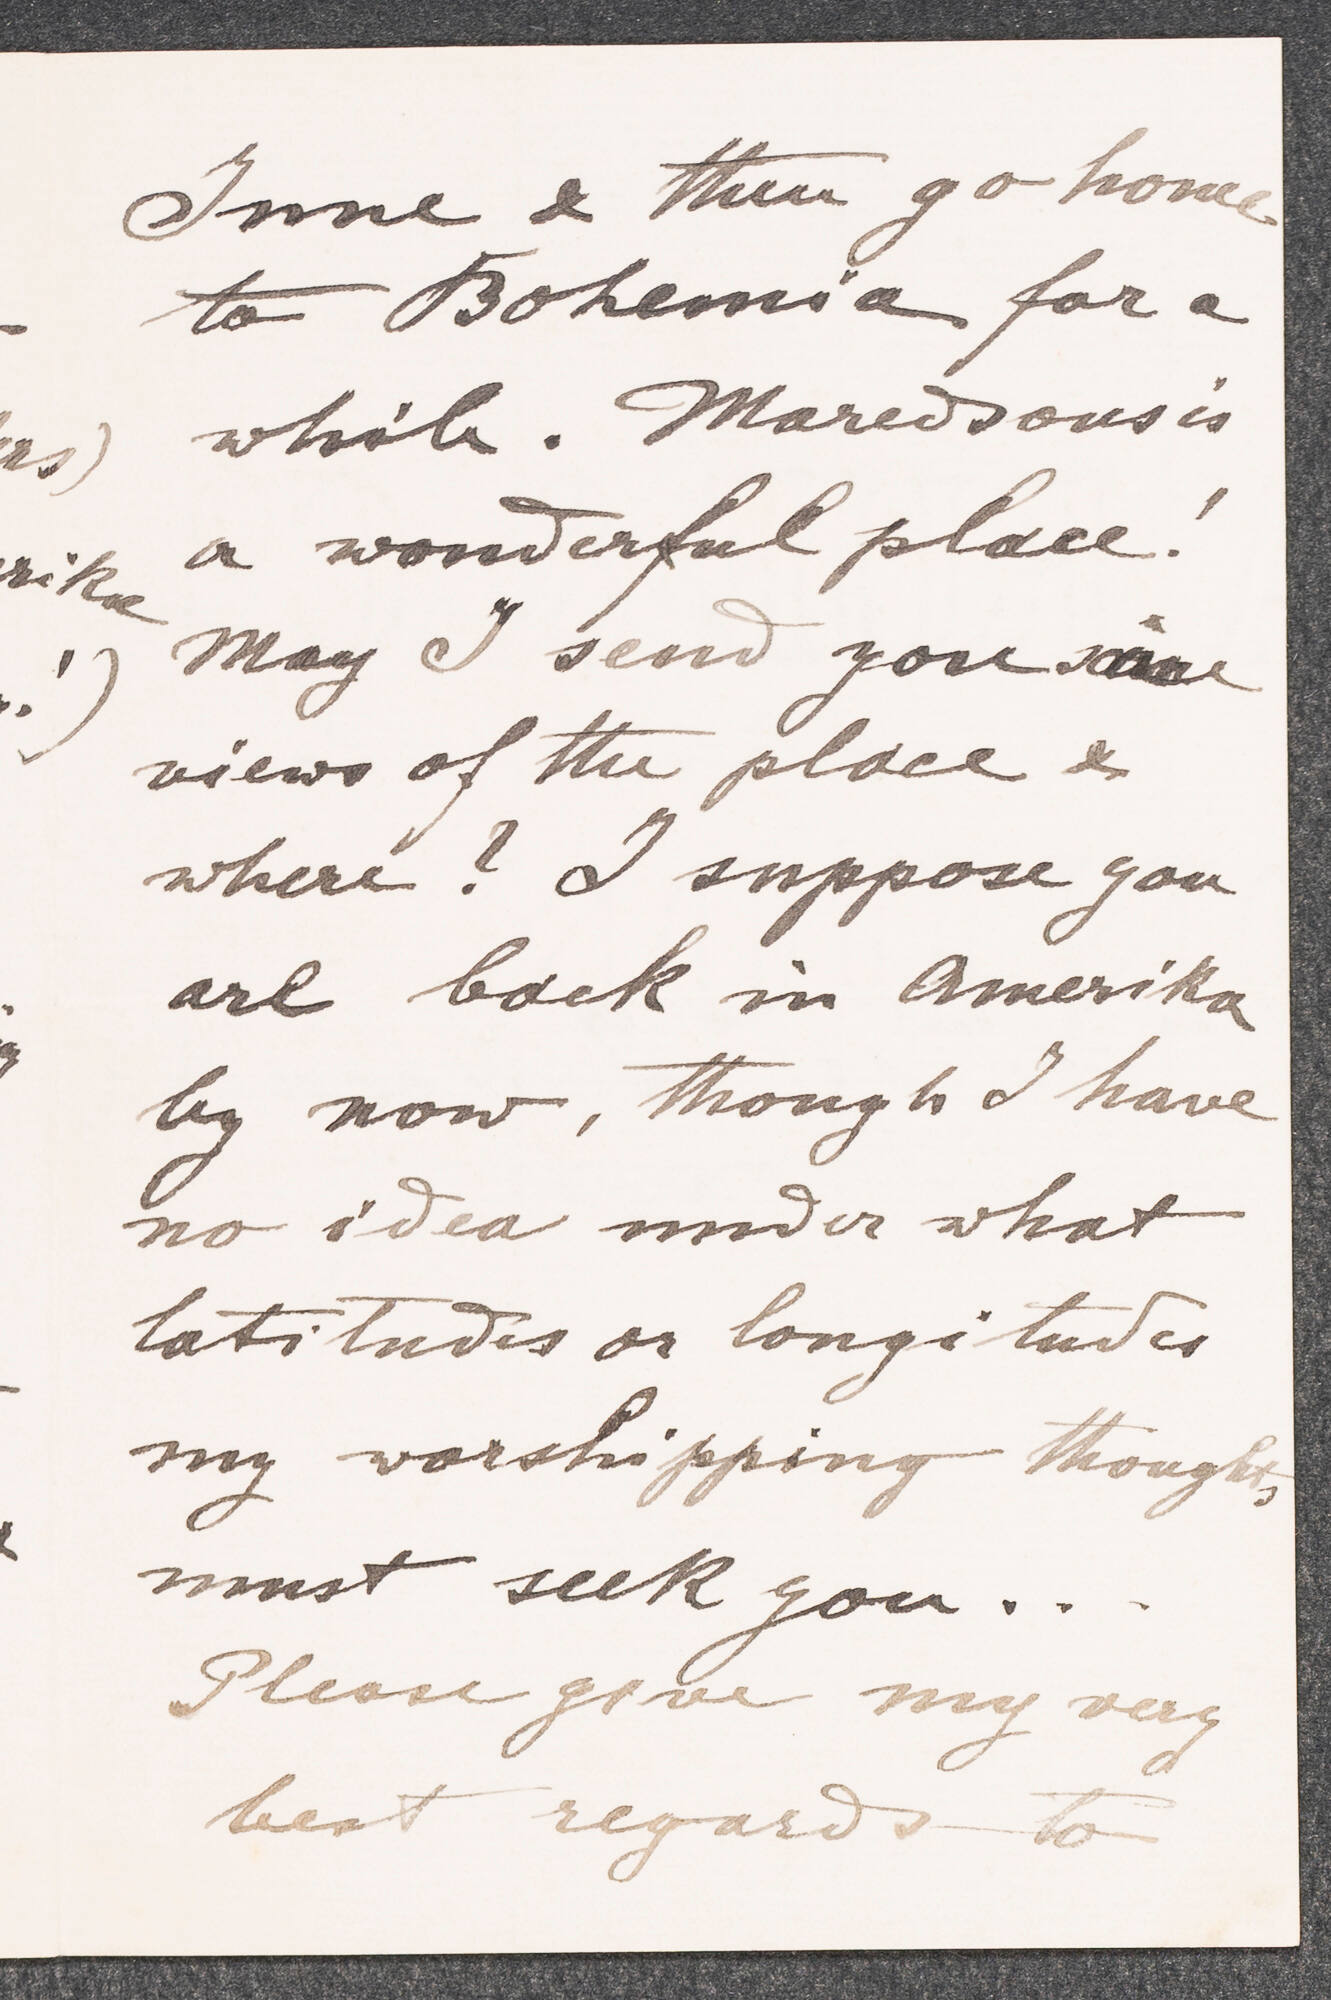 June & then go home
to Bohemia for a
while. Maredsous is
a wonderful place!
May I send you some
views of the place &
where? I suppose you
are back in Amerika
by now, though I have
no idea under what
latitudes or longitudes
my worshipping thoughts
must seek you...
Please give my very
best regards to